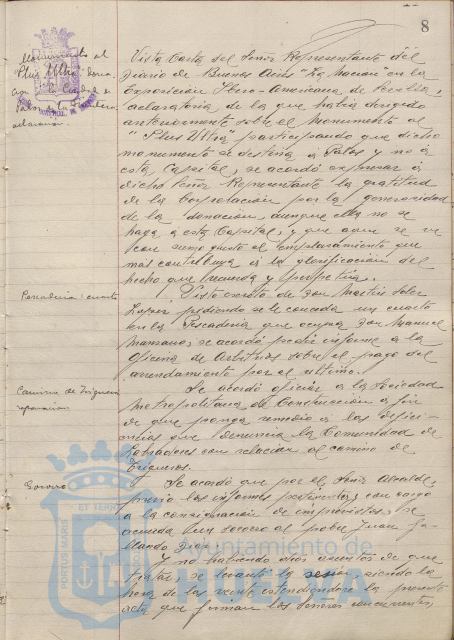 8
Monumento al
"Plus Ultra" dona-
Vista Carta del Señor Representante del
Diario de Buenos Aires "La Nacion" en la
Exposición Ibero-Americana de Sevilla,
aclaratoria de la que había dirigido
anteriormente sobre el Monumento al
"Plus Ultra" participando que dicho
monumento se destina á Palos y no á
esta Capital, se acordó expresar á
dicho Señor Representante la gratitud
de la Corporación por la generosidad
de la donación, aunque ella no se
haga á esta Capital, y que aquí se ve
con sumo gusto el emplazamiento que
más contribuya á la glorificación del
hecho que recuerda y perpetúa.
Pescadería: cuarto
Visto escrito de Don Martin Soler
Lopez pidiendo se le conceda un cuarto
en la Pescadería que ocupa Don Manuel
Manzano, se acordó pedir informe a la
Oficina de Arbitrios sobre el pago del
arrendamiento por el último.
Camino de Trigueros
reparacion
Se acordó oficiar á la Sociedad
Metropolitana de Construcción a fin
de que ponga remedio á las defici-
encias que denuncia la Comunidad de
Labradores con relación al camino de
Trigueros.
Socorro
Se acordó que por el Señor Alcalde,
previo los informes pertinentes, y con cargo
a la consignación de imprevistos, se
conceda un socorro al pobre Juan Ga-
llardo Diaz.
Y no habiendo otros asuntos de que
tratar, se levantó la sesión siendo la
hora de las veinte extendiéndose la presente
acta que firman los Señores concurrentes,
PORTUS MARIS ET TERRAE
Ayuntamiento de
HUELVA